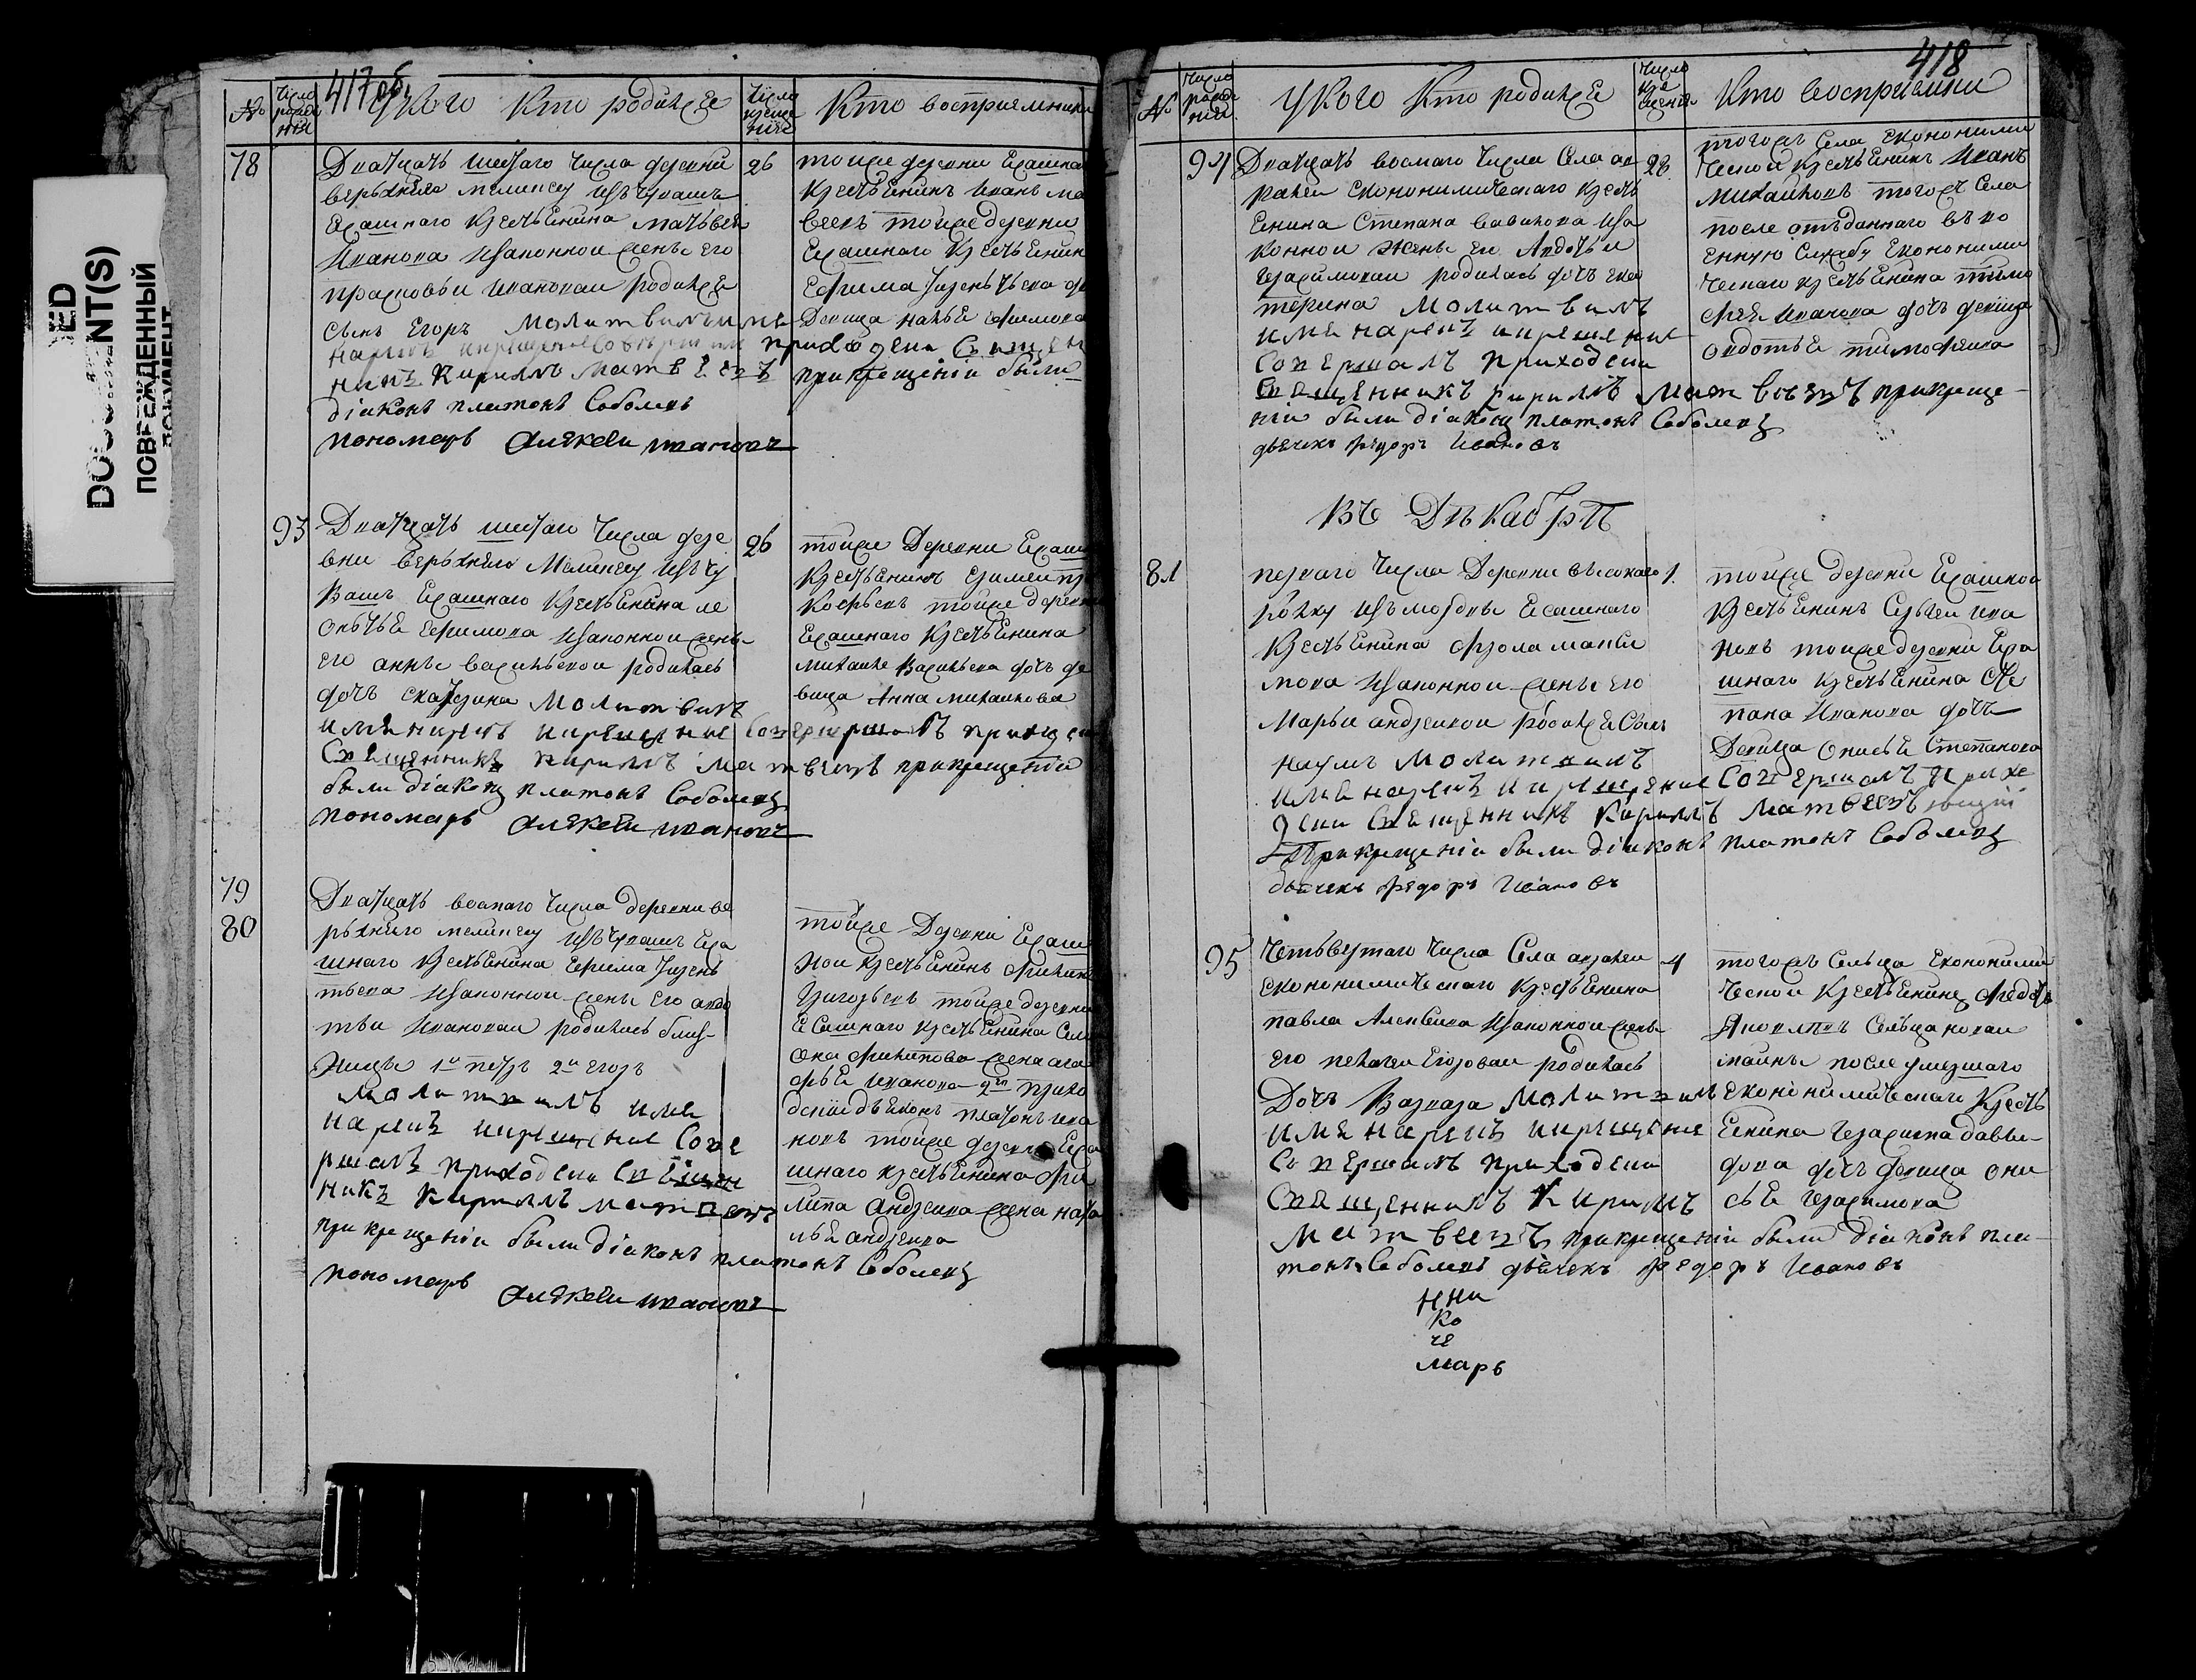 417 об.
№
Число рожде нiя
У кого кто родился
Число креще нiя
Кто восприемники
78
Дватцать шестаго числа деревни
верьхняго мелинсеу изъ чувашъ
Есашнаго крестьянина матьвея
Иванова изаконной жены его
прасковьи ивановай родился
сынъ Егоръ молитвилъ имя
нарекъ икрещение совершилъ приходски священ
никъ кирилъ матвеевъ
дiаконъ платонъ Соболевъ
пономарь Алексеи ивановъ
26
тойже деревни Есашнай
крестьянинъ иванъ ма
веевъ тойже деревни
Есашнаго крестьянин
Ефима
Девица
прикрещенiи были
93
Дватцать шестаго числа дере
вни верьхняго Мелинсеу изъ чу
вашъ Есашнаго крестьянина ле
онтья Ефимова изаконной жены
его анны васильевой родилась
дочь екатерина молитвилъ
имя нарекъ икрещение совершилъ приходски
Священникъ кирилъ матвеевъ прикрещенiи
были дiаконъ платонъ Соболевъ
пономарь Алексеи ивановъ
26
тойже Деревни Есаш
крестьянинъ
тойже деревн
Есашнаго крестьянина
михаиле Васильева дочь де
вица Анна михаилова
79
80
Дватцать восмаго числа деревни ве
рьхняго мелинсеу изъ чувашъ Еса
шнаго крестьянина Ефима
изаконной жены его авдо
тьи ивановай родились близ-
ницы 1й петръ 2й егоръ
молитвилъ имя
нарекъ икрещение сове
ршилъ приходски священ
никъ кирилъ матвеевъ
при крещенiи были дiаконъ платонъ Соболевъ
пономарь Алексеи ивановъ
тойже Деревни Есаш
ной крестьянинъ филипъ
Григорьевъ тойже деревни
Есашнаго крестьянина Сем
она филипова жена ага
фья иванова 2й прихо
дской дьяконъ платонъ ива
новъ тойже деревни Еса
шнаго крестьянина фи
липа Андреива жена ната
лья андреива
418
№
Число рожде нiя
У кого кто родился
Число кре щения
Кто восприемни
94
Дватцать восмаго числа Села
Економическаго кресть
янина Степана вавилова иза
конной жены ей Авдотьи
Герасимовай родилась дочь ека
терина молитвилъ
имя нарекъ икрещение
Совершалъ приходски
Священникъ кирилъ матвеевъ прикреще-
нiи были дiаконъ платонъ Соболевъ
дьячекъ федоръ Ивановъ
28
тогожъ Села економи
ческой крестьянинъ Иванъ
михаиловъ тогожъ Села
после отъданнаго въ во
енную службу економи
ческаго крестьянина тимо
фея иванова дочь девица
овдотья тимофеива
Въ Декабрѣ
81
перваго числа Деревни
изъ мордвы Есашнаго
крестьянина фрола макси
мова изаконной жены его
Марьи андреивой родился Сынъ
наумъ молитвилъ
имя нарекъ икрещение Совершалъ прихо
дски священникъ кирилъ матвеевъ
При крещенiи были дiаконъ платонъ Соболевъ
дьячекъ федоръ Ивановъ
1
тойже деревни Есашной
крестьянинъ Сергеи ива
новъ тойже деревни Еса
шнаго крестьянина Сте
пана Иванова дочь
Девица Онисья Степанова
95
Четьвертаго числа Села
економическаго крестьянина
павла Алексеива изаконной жены
его пелагеи Егоровай родилась
Дочь Варвара молитвилъ
имя нарекъ икрещение
Совершалъ приходски
Священникъ кирилъ
матвеевъ прикрещенiи были дiаконъ пла-
тонъ Соболевъ дьячекъ федоръ Ивановъ
4
тогожъ Сельца економи
ческой крестьянинъ федотъ
Яковлевъ
после умершаго
економическаго кресть
янина Герасима давы-
дова дочь девица они
сья Герасимова
нни
ко
че
марь
DOCUMENT(S)
ПОВРЕЖДЕННЫЙ
ДОКУМЕНТ